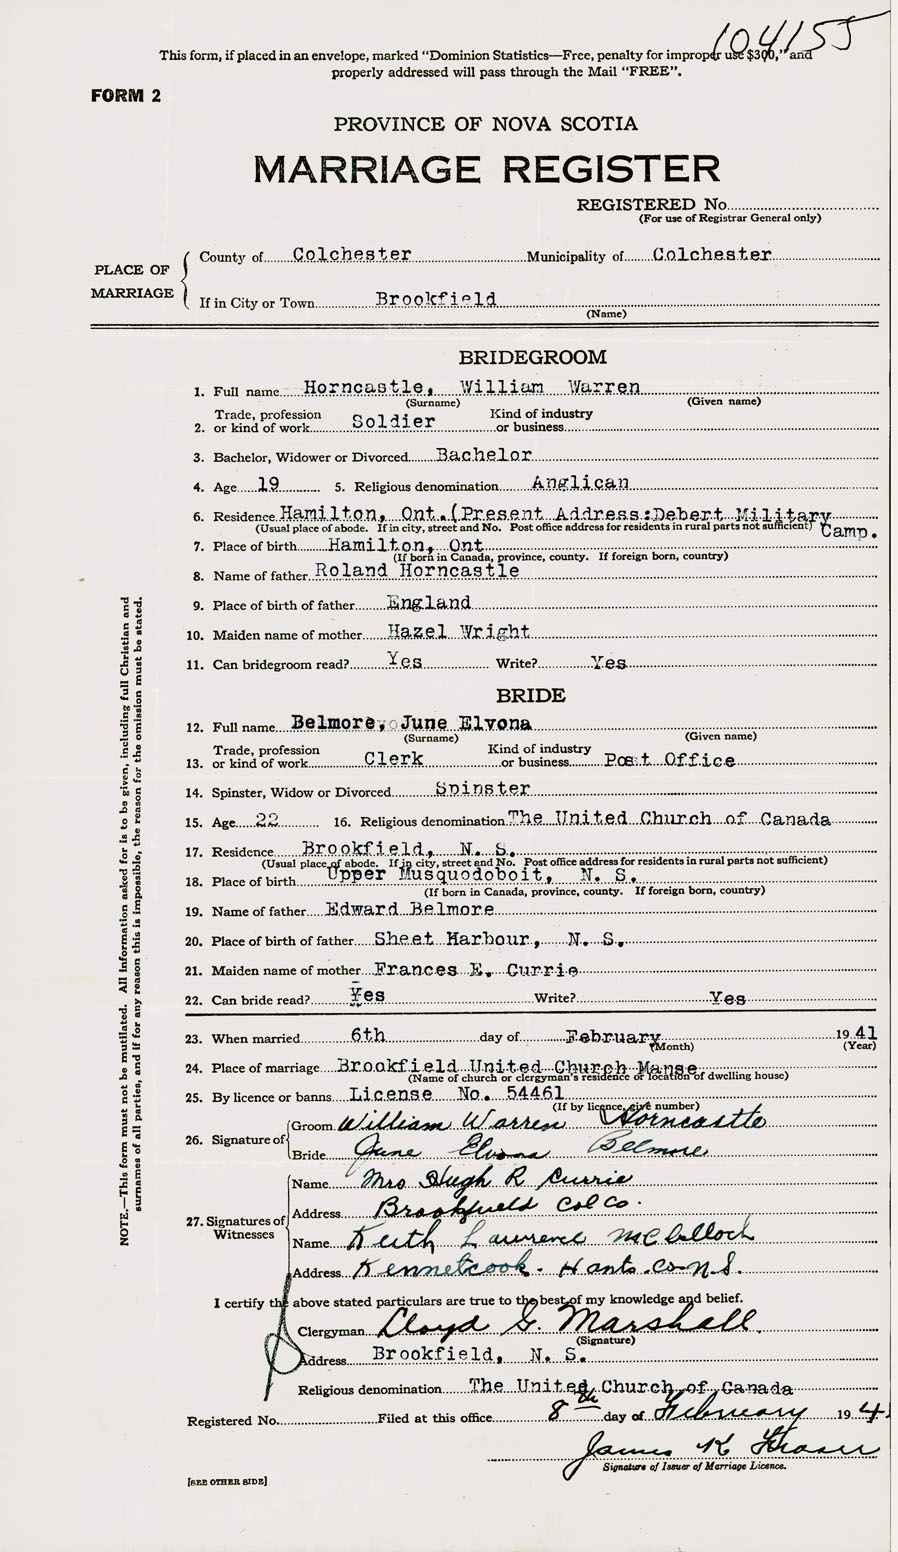 104155
This form, if placed in an envelope, marked “Dominion Statistics—Free, penalty for improper use $300,” and
properly addressed will pass through the Mail “FREE”.
FORM 2
PROVINCE OF NOVA SCOTIA
MARRIAGE REGISTER
REGISTERED No.
(For use of Registrar General only)
PLACE OF MARRIAGE
County of Colchester Municipality of Colchester
If in City or Town Brookfield
(Name)
BRIDEGROOM
1. Full name Horncastle, William Warren
(Surname) (Given name)
2. Trade, profession or kind of work Soldier Kind of industry or business
3. Bachelor, Widower or Divorced Bachelor
4. Age 19 5. Religious denomination Anglican
6. Residence Hamilton, Ont.(Present Address:Debert Military Camp.
(Usual place of abode. If in city, street and No. Post office address for residents in rural parts not sufficient)
7. Place of birth Hamilton, Ont
(If born in Canada, province, county. If foreign born, country)
8. Name of father Roland Horncastle
9. Place of birth of father England
10. Maiden name of mother Hazel Wright
11. Can bridegroom read? Yes Write? Yes
BRIDE
12. Full name Belmore, June Elvona
(Surname) (Given name)
13. Trade, profession or kind of work Clerk Kind of industry or business Post Office
14. Spinster, Widow or Divorced Spinster
15. Age 22 16. Religious denomination The United Church of Canada
17. Residence Brookfield, N. S.
(Usual place of abode. If in city, street and No. Post office address for residents in rural parts not sufficient)
18. Place of birth Upper Musquodoboit, N. S.
(If born in Canada, province, county. If foreign born, country)
19. Name of father Edward Belmore
20. Place of birth of father Sheet Harbour, N. S.
21. Maiden name of mother Frances E. Currie
22. Can bride read? Yes Write? Yes
23. When married 6th day of February 1941
(Month) (Year)
24. Place of marriage Brookfield United Church Manse
(Name of church or clergyman's residence or location of dwelling house)
25. By licence or banns License No. 54461
(If by licence, give number)
26. Signature of
Groom William Warren Horncastle
Bride June Elvona Belmore
27. Signatures of Witnesses
Name Mrs Hugh R Currie
Address Brookfield Col Co.
Name Keith Lawrence McCulloch
Address Kennetcook. Hants. Co. N.S.
I certify the above stated particulars are true to the best of my knowledge and belief.
Clergyman Lloyd G. Marshall.
(Signature)
Address Brookfield, N. S.
Religious denomination The United Church of Canada
Registered No. Filed at this office 8th day of February 194
James K Fraser
Signature of Issuer of Marriage Licence.
[SEE OTHER SIDE]
NOTE.—This form must not be mutilated. All information asked for is to be given, including full Christian and
surnames of all parties, and if for any reason this is impossible, the reason for the omission must be stated.